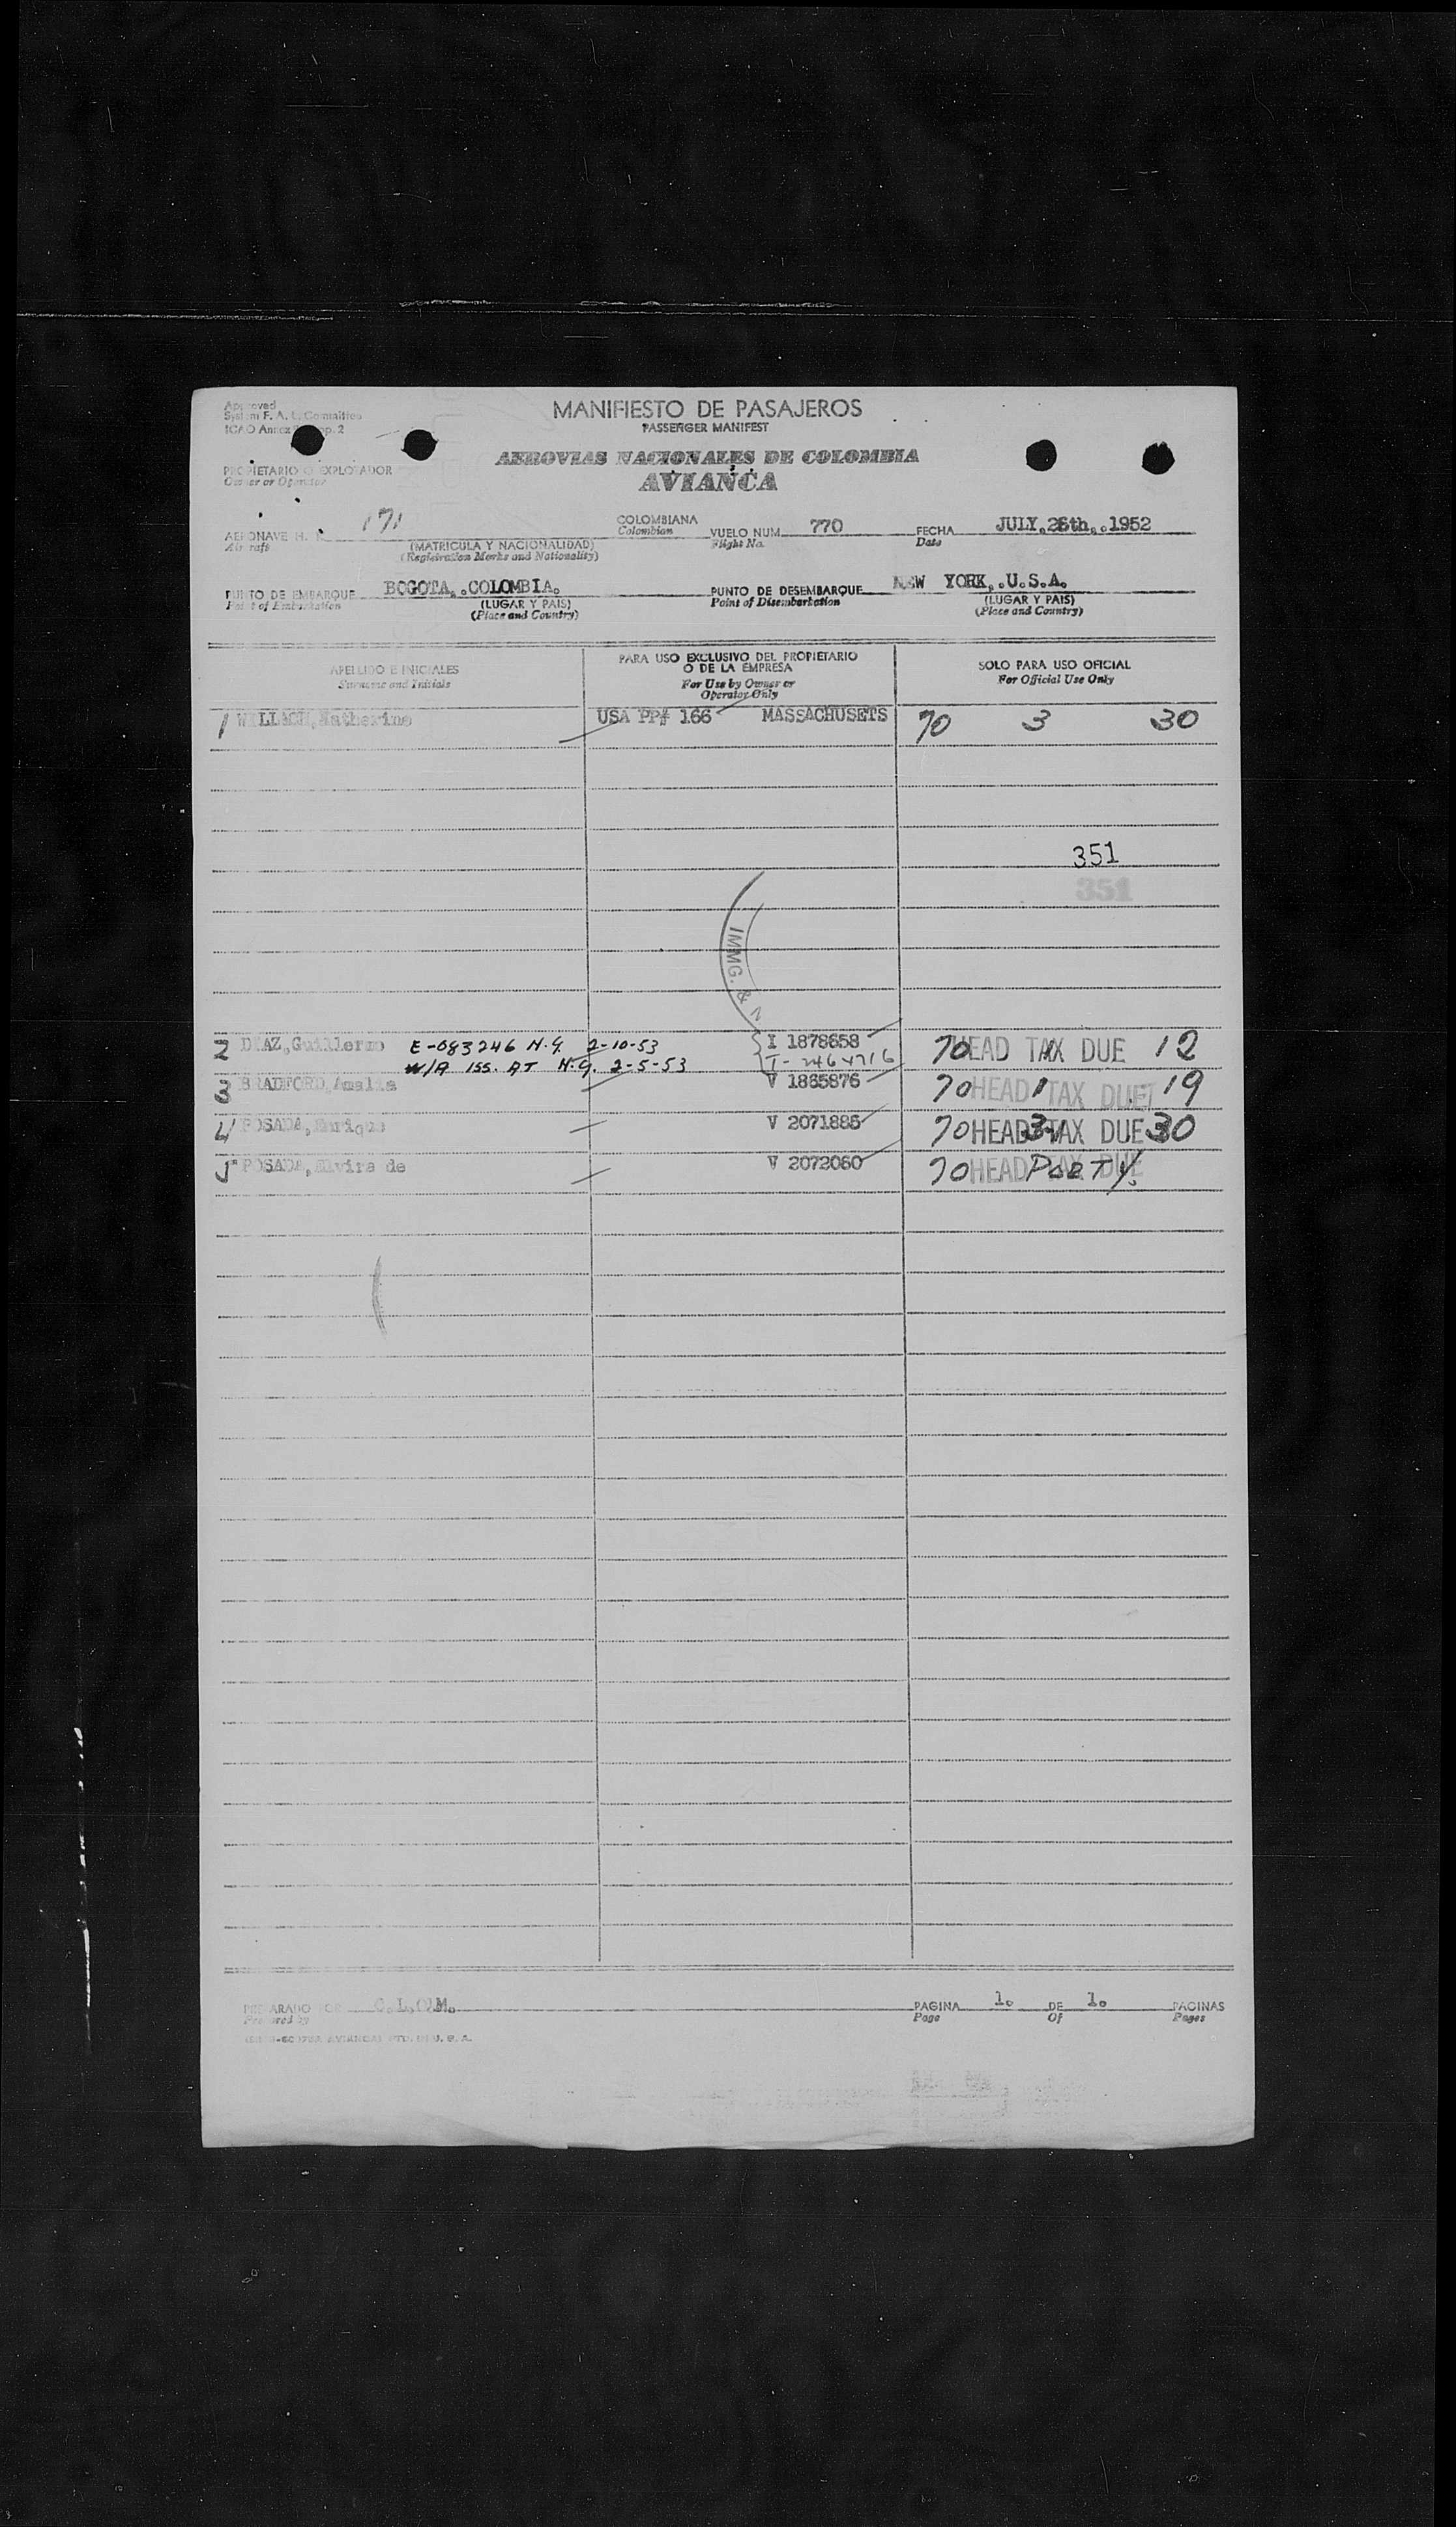 Approved
System F. A. L. Committee
ICAO Annex
MANIFIESTO DE PASAJEROS
PASSENGER MANIFEST
AEROVIAS NACIONALES DE COLOMBIA
AVIANCA
PROPIETARIO O EXPLOTADOR
Owner or Operator
AERONAVE H. K. 171 COLOMBIANA VUELO NUM. 770 FECHA JULY, 28th,.1952
Aircraft (MATRICULA Y NACIONALIDAD) Colombian Flight No. Date
(Registration Marks and Nationality)
PUNTO DE EMBARQUE BOGOTA,.COLOMBIA. PUNTO DE DESEMBARQUE NEW YORK,.U.S.A.
Point of Embarkation (LUGAR Y PAIS) Point of Disembarkation (LUGAR Y PAIS)
(Place and Country) (Place and Country)
APELLIDO E INICIALES PARA USO EXCLUSIVO DEL PROPIETARIO O DE LA EMPRESA SOLO PARA USO OFICIAL
Surname and Initials For Use by Owner or Operator Only For Official Use Only
1 Katherine USA PP# 166 MASSACHUSETS 70 3 30
351
351
IMMG. & N
2 DIAZ,Guillermo E-083246 N.Y. 2-10-53 I 1878658 70 HEAD TAX DUE 12
W/A ISS. AT N.Y. 2-5-53
3 BRADFORD,Amalia V 1865876 70 HEAD TAX DUE 1 19
4 POSADA,Enrique V 2071885 70 HEAD TAX DUE 30
5 POSADA,Elvira de V 2072060 70 HEAD TAX DUE
PREPARADO POR C.L.O.M. PAGINA 1. DE 1. PAGINAS
Prepared by Page Of Pages